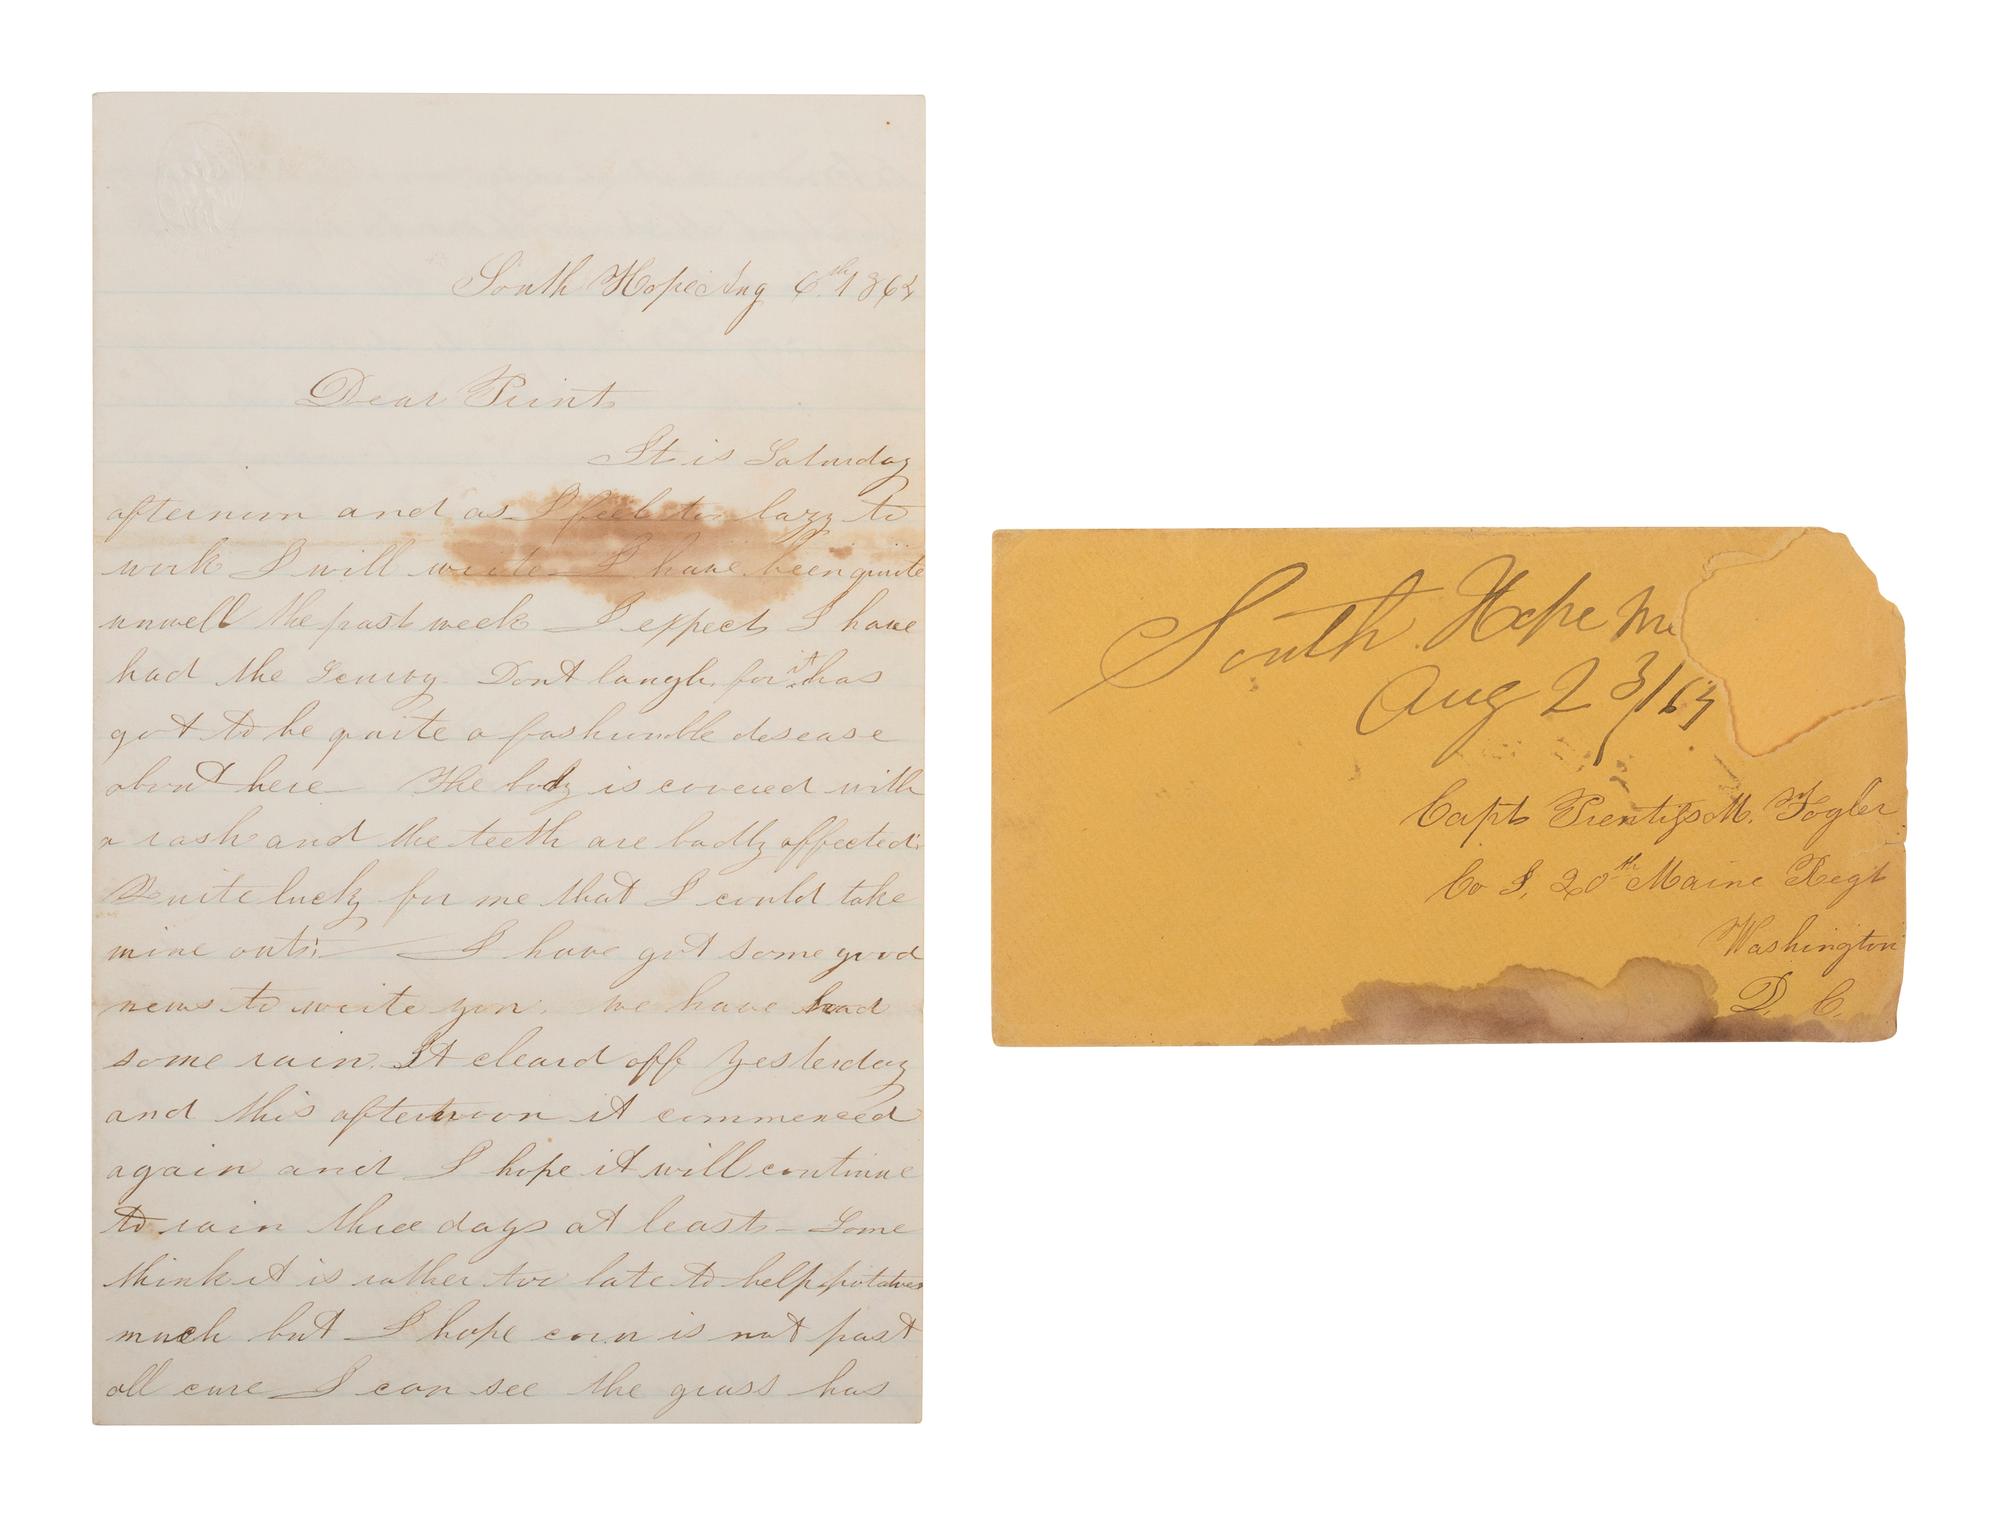 South Hope Aug 6th. 1864
Dear Print
It is Saturday
afternoon and as I feel too lazy to
work I will write I have been quite
unwell the past week I expect I have
had the Scurvy Dont laugh, for it has
got to be quite a fashionable desease
about here The body is covered with
a rash and the teeth are badly affected.
Quite lucky for me that I could take
mine out!! I have got some good
news to write you. we have had
some rain. It cleard off yesterday
and this afternoon it commenced
again and I hope it will continue
to rain three days at least - Some
think it is rather too late to help potatoes
much but I hope corn is not past
all cure I can see the grass has
South Hope Me
Aug 23/64
Capt Prentiss M. Fogler
Co I, 20th Maine Regt
Washington
D. C.